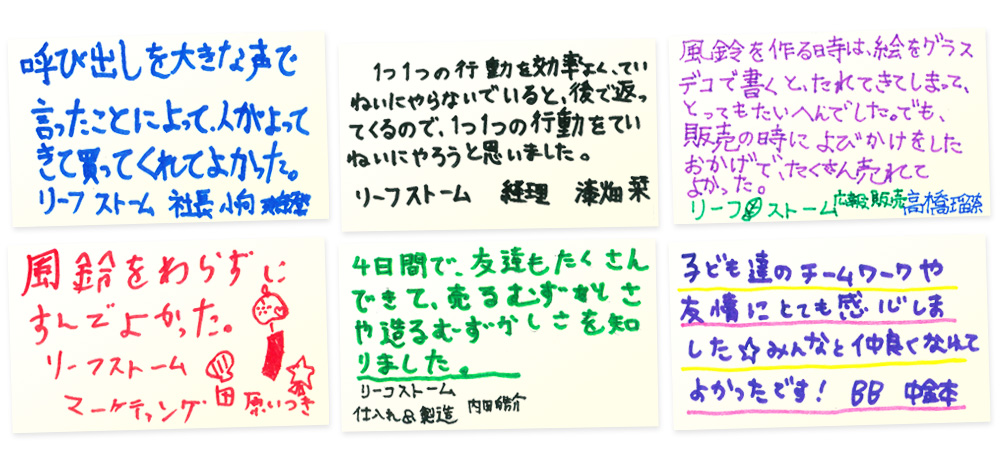 呼び出しを大きな声で
言ったことによって、人がよって
きて買ってくれてよかった。
リーフストーム 社長 小向
1つ1つの行動を効率よく、てい
ねいにやらないでいると、後で返っ
てくるので、1つ1つの行動をてい
ねいにやろうと思いました。
リーフストーム 経理 漆畑 栞
風鈴を作る時は、絵をグラス
デコで書くと、たれてきてしまって、
とってもたいへんでした。でも、
販売の時によびかけをした
おかげで、たくさん売れてて
よかった。
リーフストーム 広報&販売 高橋瑠
風鈴をわらずに
すんでよかった。
リーフストーム
マーケティング 田原いつき
4日間で、友達もたくさん
できて、売るむずかしさ
や造るむずかしさを知
りました。
リーフストーム
仕入れ&製造 内田皓介
子ども達のチームワークや
友情にとても感心しま
した☆みんなと仲良くなれて
よかったです! BB 中金本